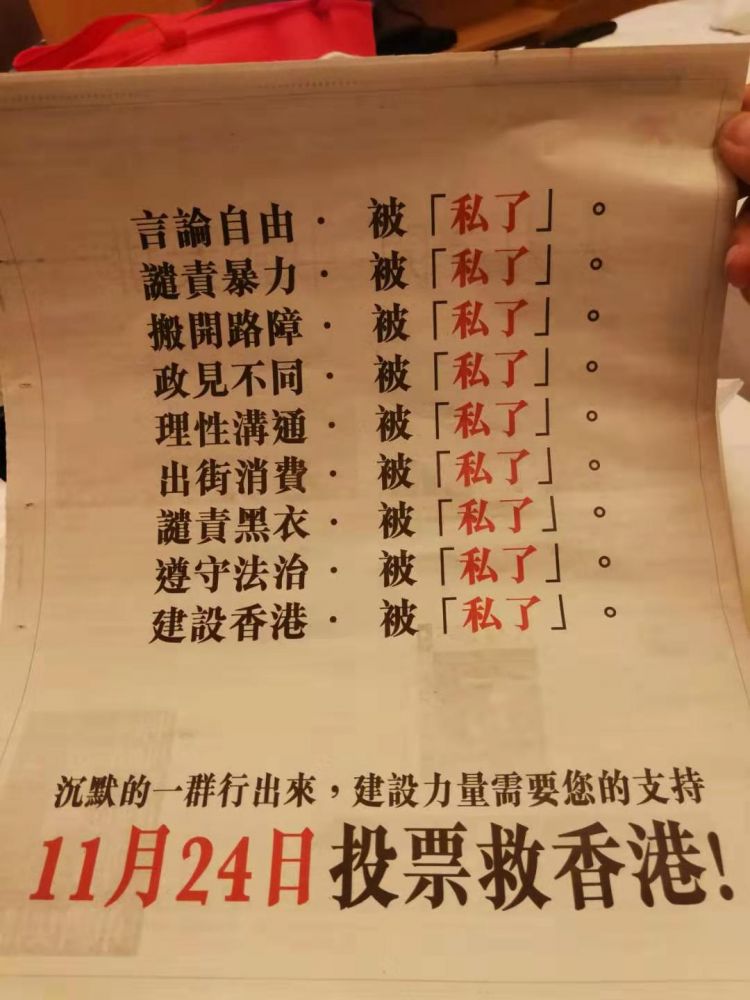 言論自由· 被「私了」。
譴責暴力· 被「私了」。
搬開路障· 被「私了」。
政見不同· 被「私了」。
理性溝通· 被「私了」。
出街消費· 被「私了」。
譴責黑衣· 被「私了」。
遵守法治· 被「私了」。
建設香港· 被「私了」。
沉默的一群行出來，建設力量需要您的支持
11月24日投票救香港!